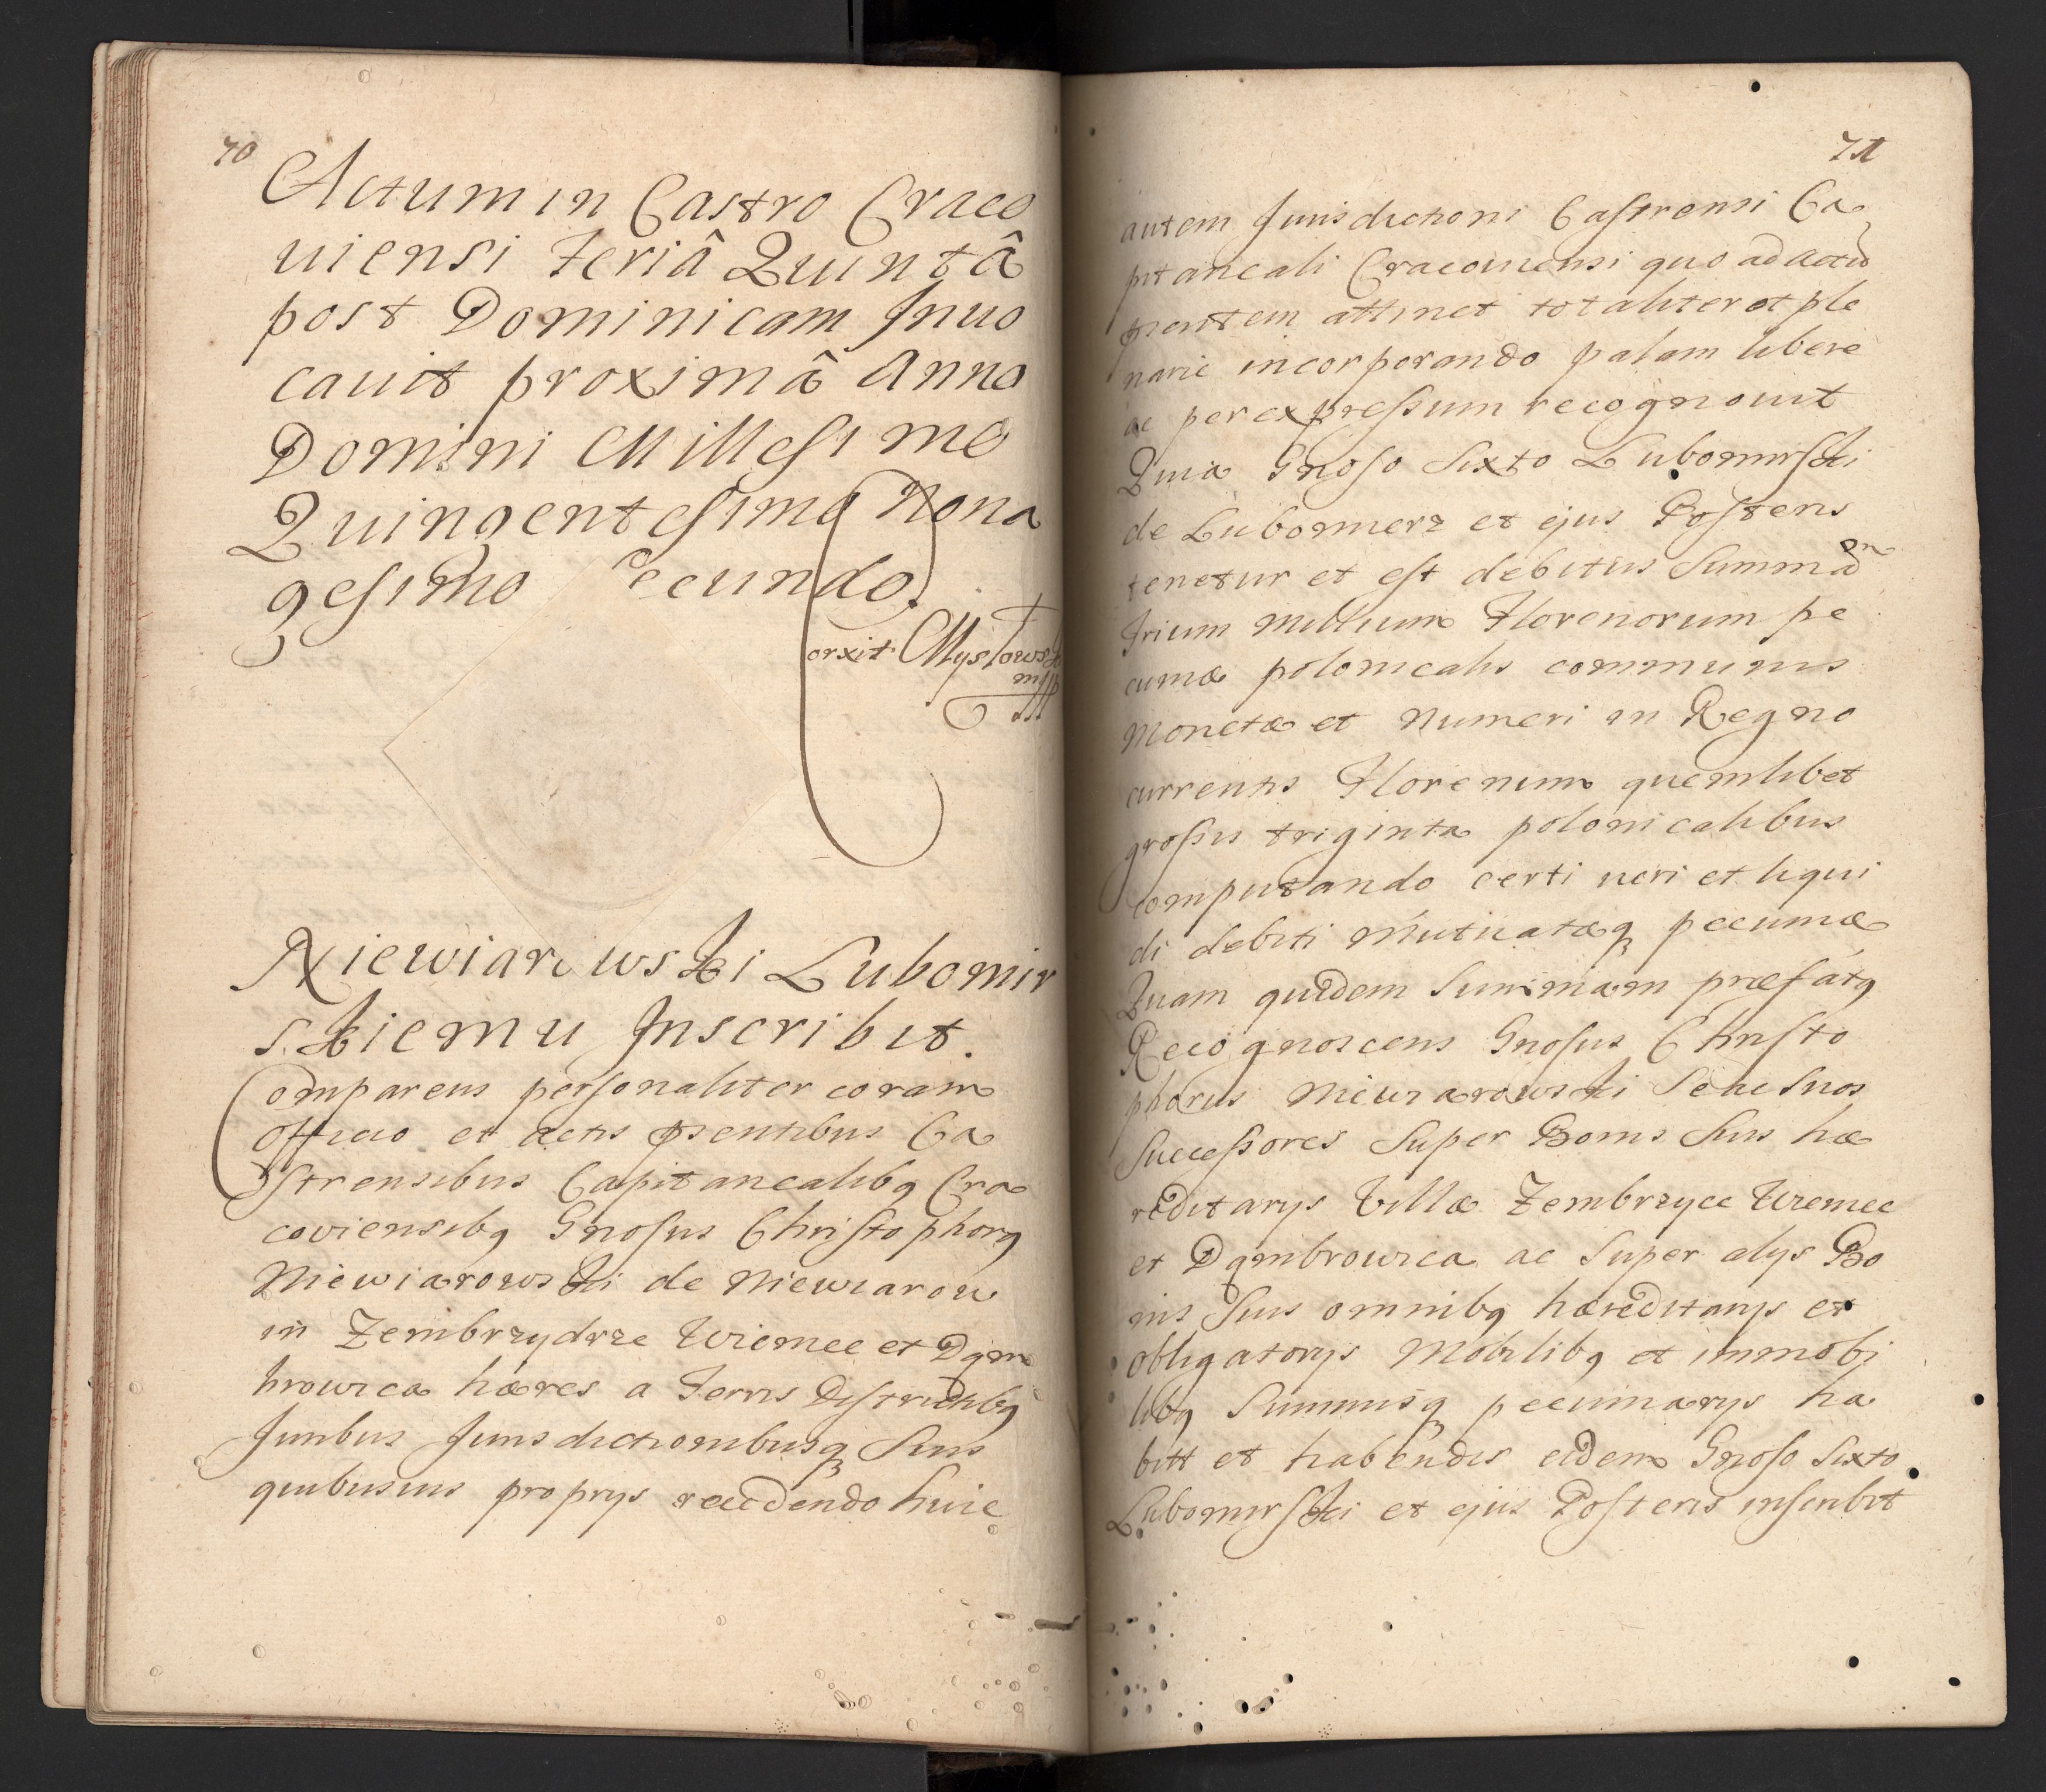 70
Actum in Castro Craco
uiensi Feriâ Quintâ
post Dominicam Inuo
cauit proximâ Anno
Domini Millesimo
Quingentesimo Nona
gesimo Secundo.
Niewiarowski Lubomir
skiemu Inscribit.
Comparens personaliter coram
Officio et actis pսentibus Ca
strensibus Capitanealibq Cra
coviensibq Gnosus Christophorq
Niewiarowski de Niewiarow
in Zembrzydrze Wiemec et Dąm
browica hæres a Terris Districtibq
Juribus Jurisdictionibusq Suis
quibusuis proprys recedendo huic
71
autem Jurisdictioni Castrensi Ca
pitaneali Cracouiensi quo ad actu
pսentem attinet totaliter et ple
narie incorporando palam libere
ac per expressum recognouit
Quia Gnoso Sixto Lubomirski
de Lubomierz et ejus Posteris
tenetur et est debitus Summam
Trium Millium Florenorum pe
cuniæ polonicalis communis
Monetæ et Numeri in Regno
currentis Florenum quemlibet
grossis triginta polonicalibus
computando certi ueri et liqui
di debiti Mutuatæq pecuniæ
Quam quidem Summam præfatq
Recognoscens Gnosus Christo
phorus Niewiarowski Se ac Suos
Successores Super Bonis Suis hæ
reditarys Villæ Zembrzyce Wiemec
et Dąmbrowica ac Super alys Bo
nis Suis omnibq hæreditarys et
obligatorys Mobilibq et immobi
libq Summisq pecuniarys ha
bitt et habendis eidem Gnoso Sixto
Lubomirski et ejus Posteris inscribit